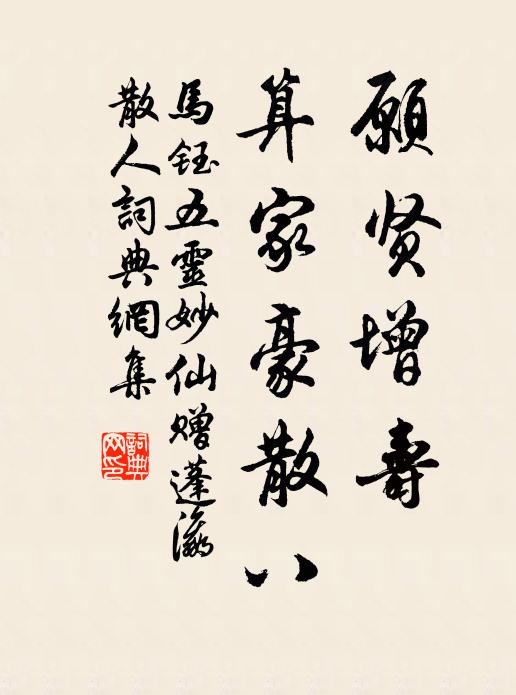 願贤增壽
算家豪散八
馬鈺五靈妙仙赠蓬瀛
散人詞典網集
詞典
网印